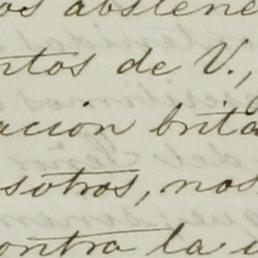 os abstene
ntos de V.,
ación brita
sotros, nos
ontra la i